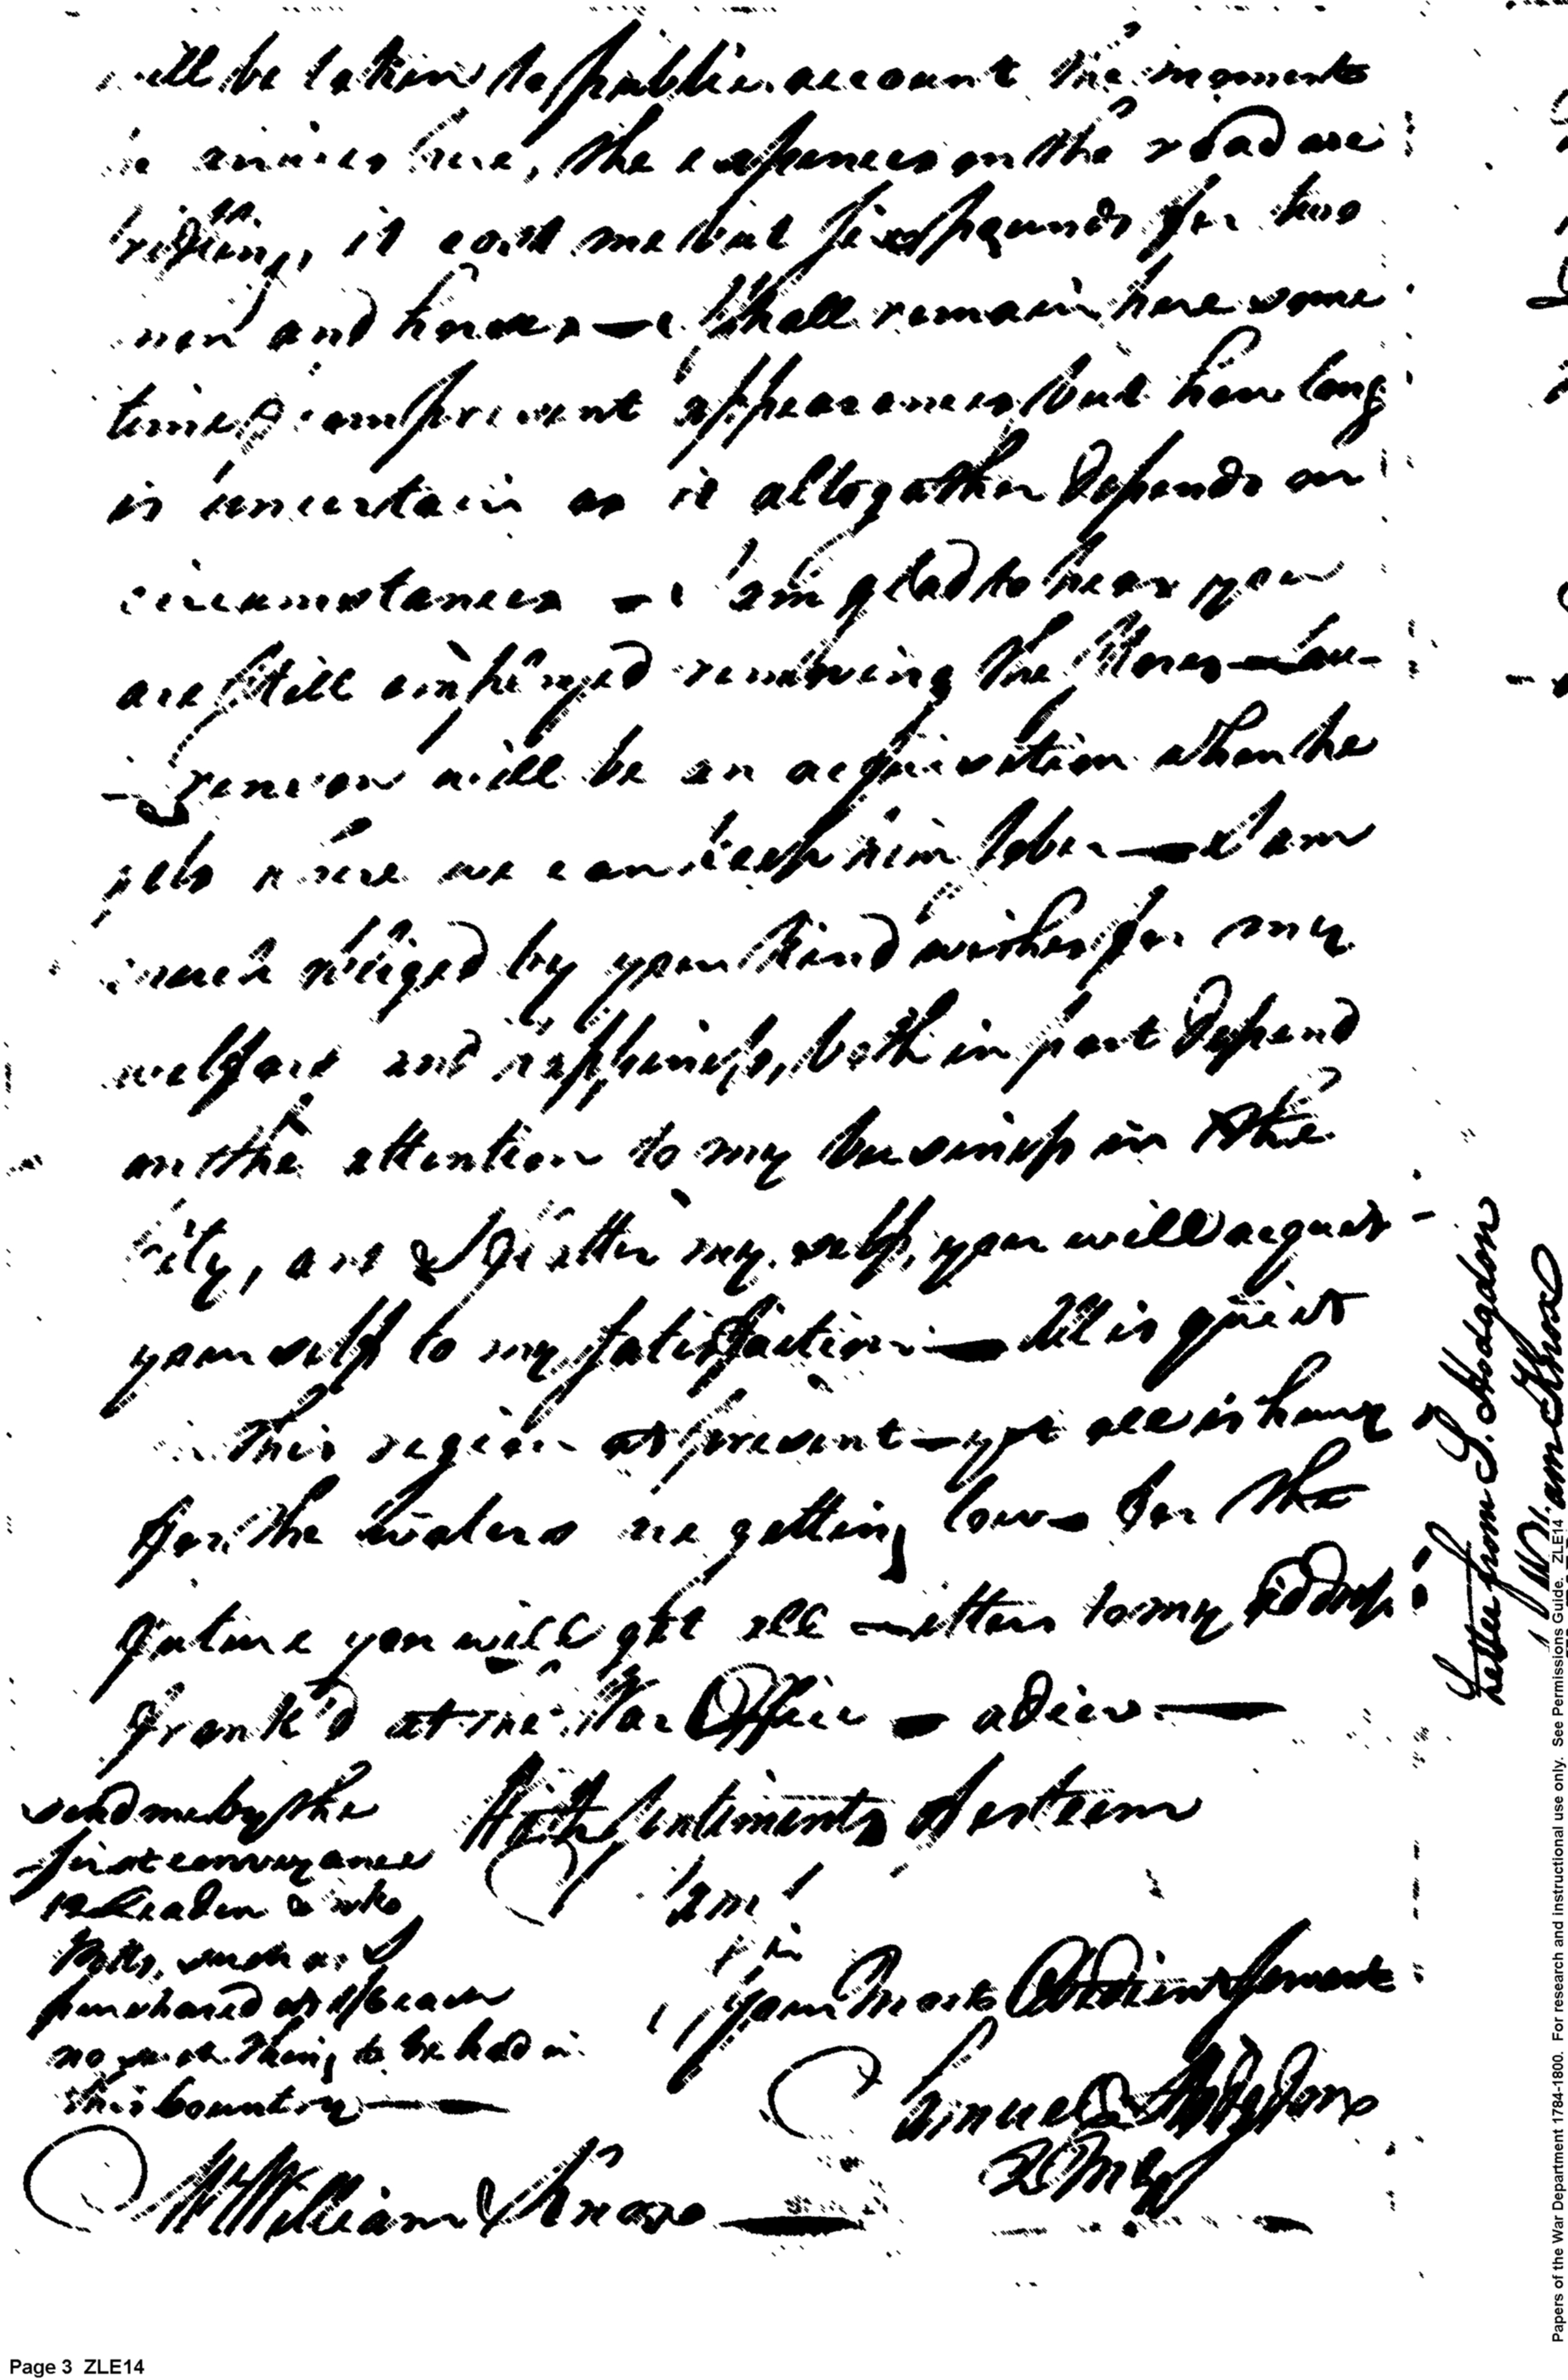 will be taken to public account the moment
he arrives here, the expences on the road are
trifling, it cost me but six pounds for two
men and horses — I shall remain here some
time from present appearances, but how long
is uncertain as it altogather depends on
circumstances — I am glad to hear you
are still employed removing the Stores —
will be an acquisition when he
gets where we can keep him sober — I am
much obliged by your kind wishes for my
welfare and happiness, both in part depend
on the attention to my business in the
City, and I flatter my self, you will acquit
yourself to my satisfaction — All is quiet
in this region at present — yet all is hurry
for the waters are getting low — for the
future you will get all letters to my address
frank'd at the War Office — adieu —
With sentiments of esteem
I am
Sir
your most Obedient Servant
Samuel Hodgdon
QMG
send me by the
first conveyance
12 Leaden Ink
Potts, such as I
purchased at 1/6 each
no such thing to be had in
this Country —
Mr William Knox —
Letter from S. Hodgdon
to William Knox
Papers of the War Department 1784-1800. For research and instructional use only. See Permissions Guide. ZLE14
Page 3 ZLE14